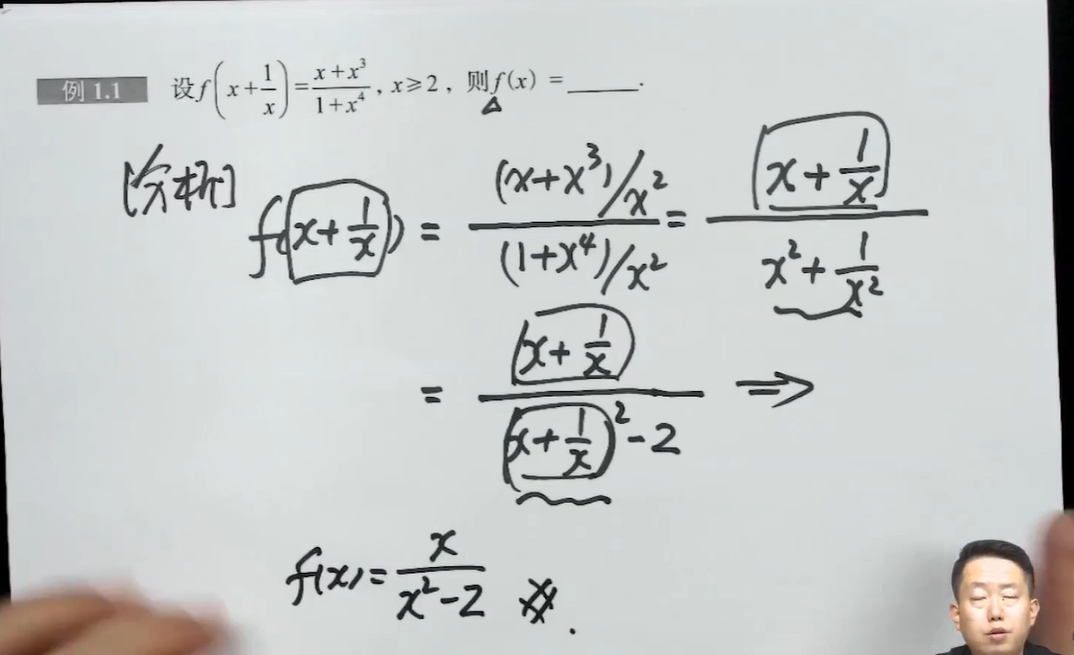 例 1.1 设f(x+1/x)=(x+x³)/(1+x⁴), x≥2, 则f(x) = ______.
[分析]
f(x+1/x) = ((x+x³)/x²)/((1+x⁴)/x²) = (x+1/x)/(x²+1/x²)
= (x+1/x)/((x+1/x)²-2) ⇒
f(x)=x/(x²-2)